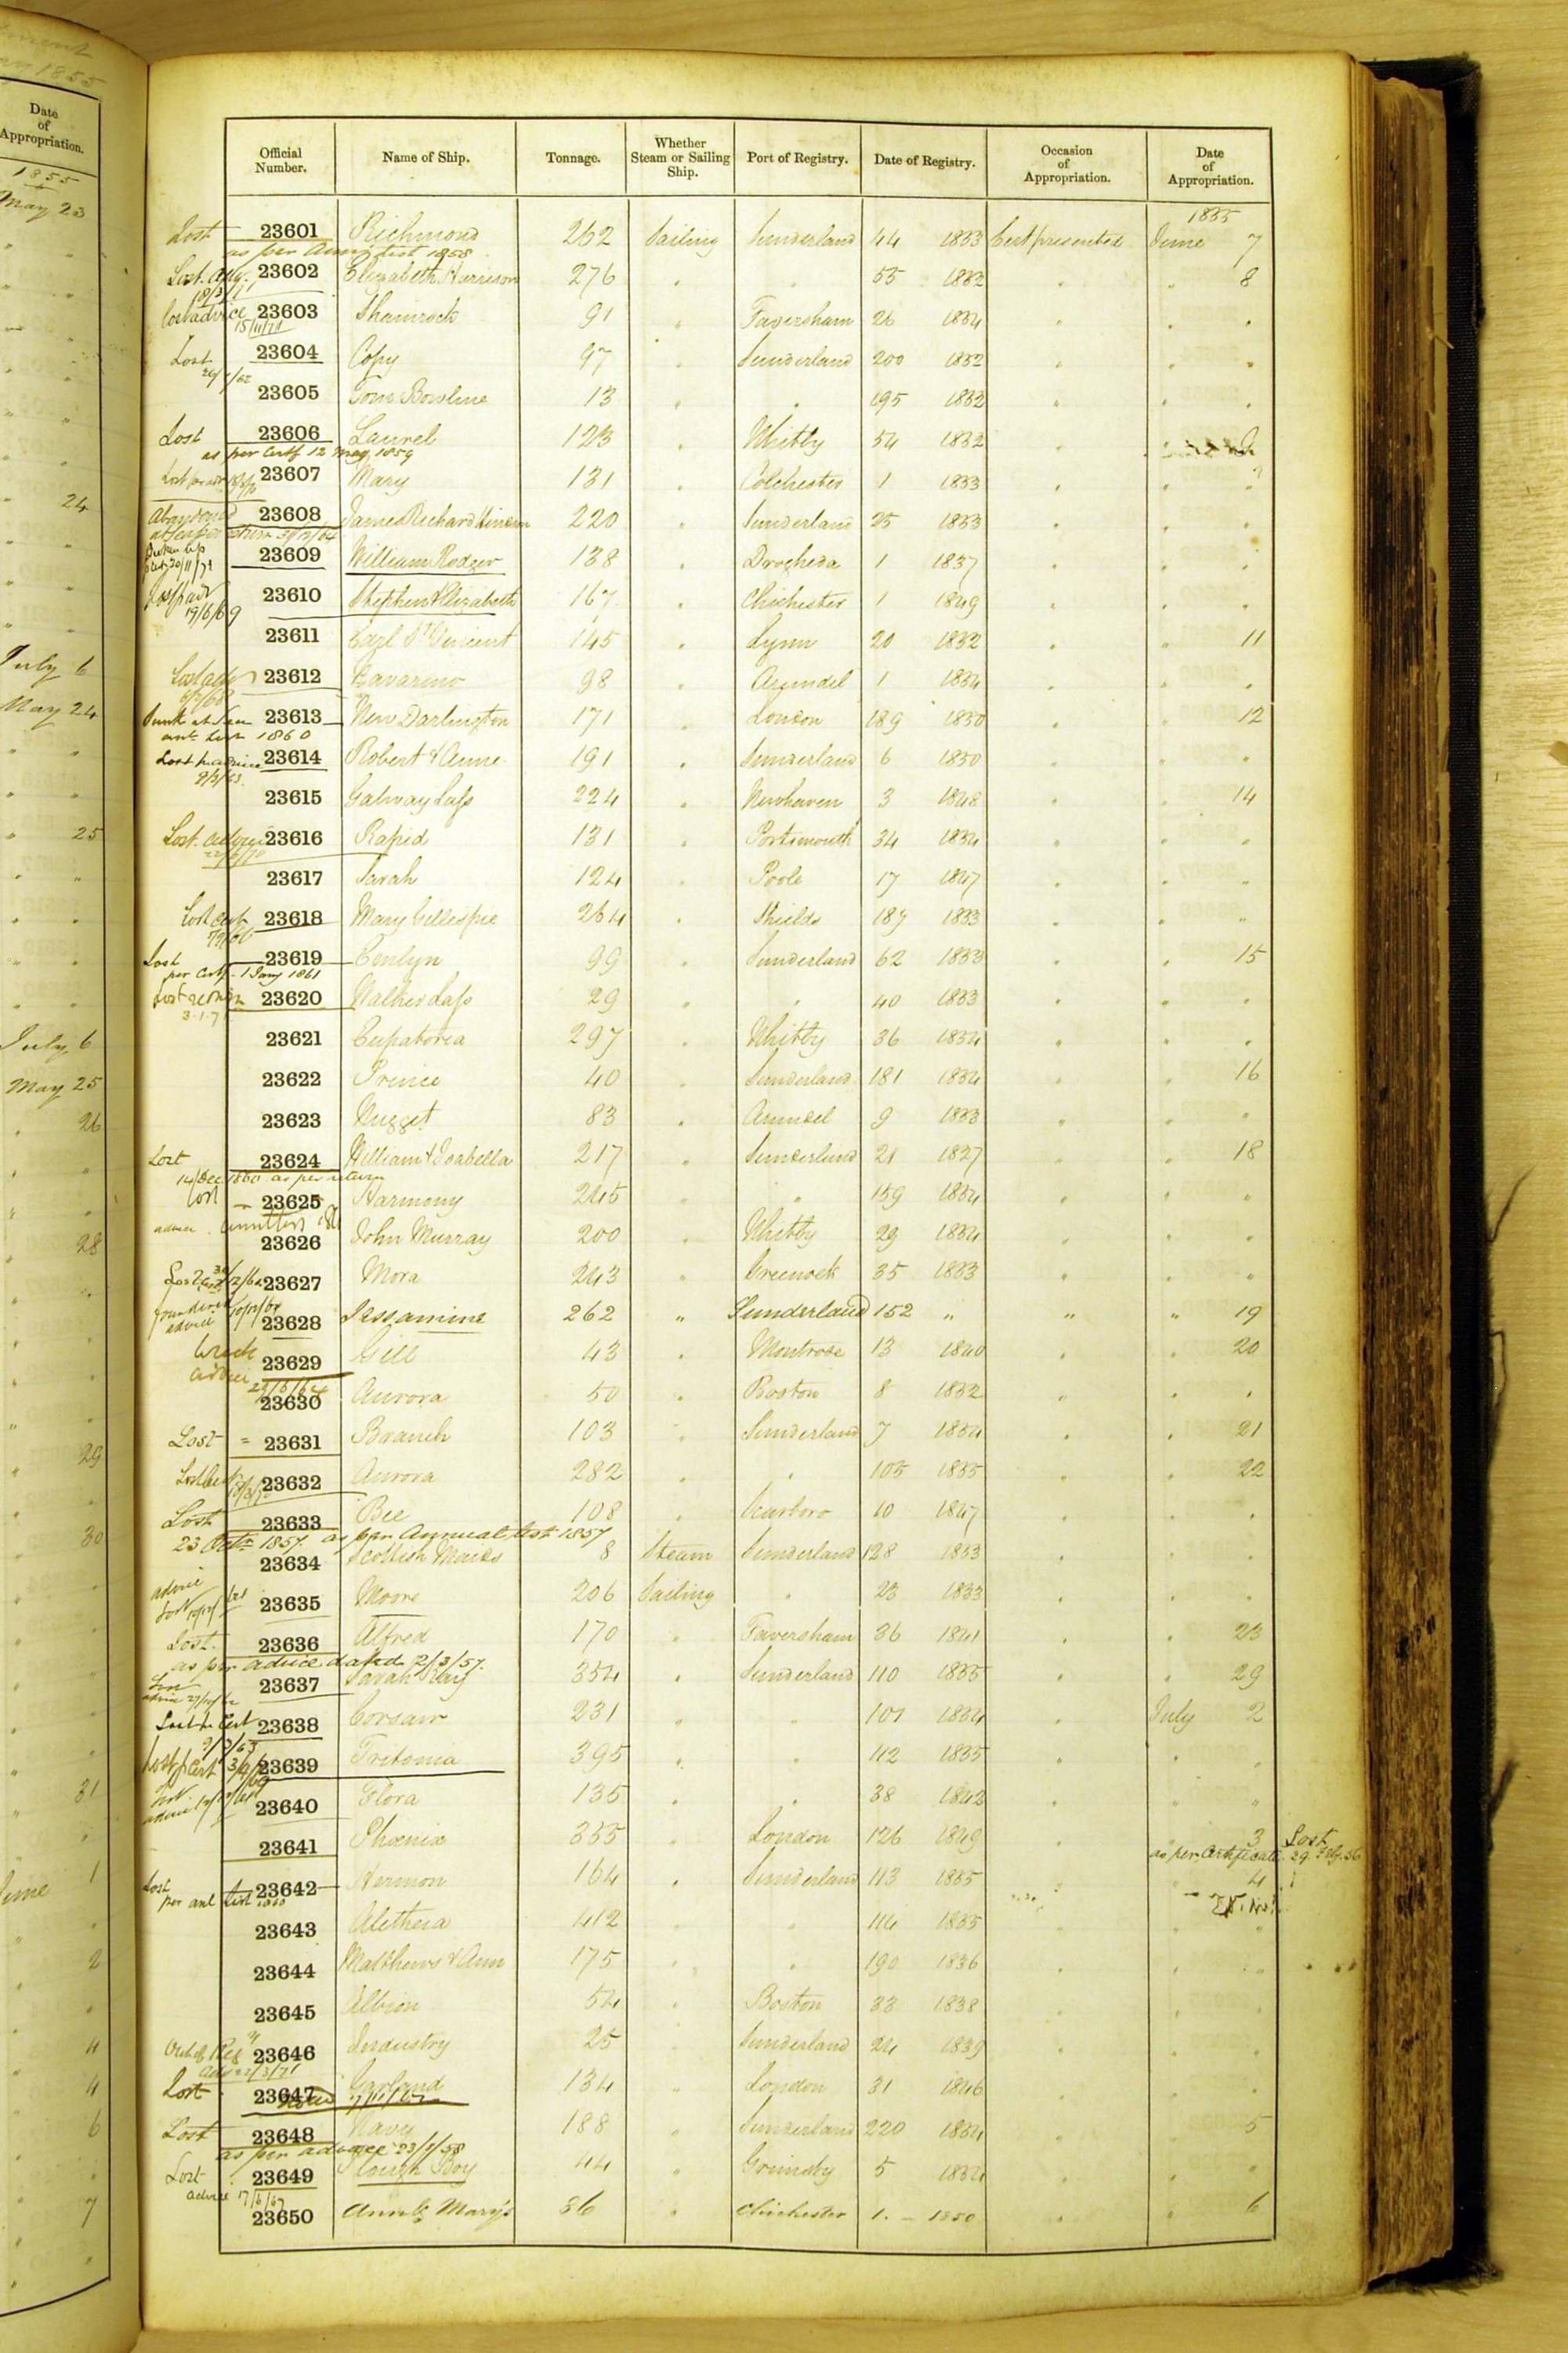 Date
of
Appropriation.
1855
May 23
24
July 6
May 24
25
July 6
May 25
26
28
29
30
31
June 1
2
4
4
6
7
Official Number. Name of Ship. Tonnage. Whether Steam or Sailing Ship. Port of Registry. Date of Registry. Occasion of Appropriation. Date of Appropriation.
1855
Lost 23601 Richmond 262 Sailing Sunderland 44 1853 Cert presented June 7
as per Ann list 1858
Lost 23602 Elizabeth Harrison 276 " " 55 1852 " " 8
Lost advice 23603 Shamrock 91 " Faversham 26 1854 " " "
15/11/71
Lost 23604 Copy 97 " Sunderland 200 1852 " " "
23605 Tom Bowline 13 " " 195 1852 " " "
Lost 23606 Laurel 123 " Whitby 54 1852 "
as per Certf 12 May 1859
23607 Mary 131 " Colchester 1 1853 " "
Abandoned 23608 James Richard 220 " Sunderland 25 1853 " " "
Broken up 23609 William Rodger 138 " Drogheda 1 1837 " " "
20/11/71
23610 Stephen & Elizabeth 167 " Chichester 1 1849 " " "
19/6/69
23611 Earl St Vincent 145 " Lynn 20 1852 " " 11
23612 Navarino 98 " Arundel 1 1854 " " "
Sunk at Sea 23613 New Darlington 171 " London 189 1850 " " 12
1860
Lost 23614 Robert & Anne 191 " Sunderland 6 1850 " " "
23615 Galway Lass 224 " Newhaven 3 1848 " " 14
Lost advice 23616 Rapid 131 " Portsmouth 34 1854 " " "
23617 Sarah 124 " Poole 17 1847 " " "
Lost cert 23618 Mary Gillespie 264 " Shields 187 1853 " " "
Lost 23619 Emlyn 99 " Sunderland 62 1853 " " 15
per Certf. 1 Jany 1861
Lost 23620 Walker Lass 29 " " 40 1853 " " "
23621 Eupatoria 297 " Whitby 36 1854 " " "
23622 Prince 40 " Sunderland 181 1854 " " 16
23623 Nugget 83 " Arundel 9 1853 " " "
Lost 23624 William & Isabella 217 " Sunderland 21 1827 " " 18
14/Dec 1860 as per return
Lost 23625 Harmony 245 " " 159 1854 " " "
advice
23626 John Murray 200 " Whitby 29 1854 " " "
23627 Mora 243 " Greenock 35 1853 " " "
foundered advice 23628 Jessamine 262 " Sunderland 152 " " " 19
Wreck 23629 Gill 43 " Montrose 13 1840 " " 20
advice
23630 Aurora 50 " Boston 8 1852 " " "
Lost 23631 Branch 103 " Sunderland 7 1854 " " 21
23632 Aurora 282 " " 105 1855 " " 22
Lost 23633 Bee 108 " Scarboro 10 1847 " " "
23 Octr 1857 as per Annual list 1857
23634 Scottish Maids 8 Steam Sunderland 128 1853 " " "
advice Lost 23635 Moore 206 Sailing " 23 1853 " " "
Lost. 23636 Alfred 170 " Faversham 36 1841 " " 23
as per advice dated 2/3/57.
23637 Sarah 354 " Sunderland 110 1855 " " 29
Lost pr Cert 23638 Corsair 231 " " 107 1854 " July 2
9/3/63
Lost p Cert 23639 Tritonia 395 " " 112 1855 " " "
23640 Flora 135 " " 38 1842 " " "
23641 Phœnix 355 " London 126 1849 " " 3 Lost
as per Certificate 29 Feby. 56
Lost 23642 Hermon 164 " Sunderland 113 1855 " " 4
per anl list 1860
23643 Aletheia 412 " " 114 1855 " "
23644 Matthews & Ann 175 " " 190 1836 " " "
23645 Albion 54 " Boston 33 1838 " " "
Out of Reg 23646 Industry 25 " Sunderland 24 1839 " " "
Lost 23647 Garland 134 " London 31 1846 " " "
Lost 23648 Navy 188 " Sunderland 220 1854 " " 5
as per advice 23/1/58
Lost 23649 Plough Boy 44 " Grimsby 5 1854 " " "
advice 17/6/67
23650 Ann & Mary's 36 " Chichester 1. 1850 " " 6